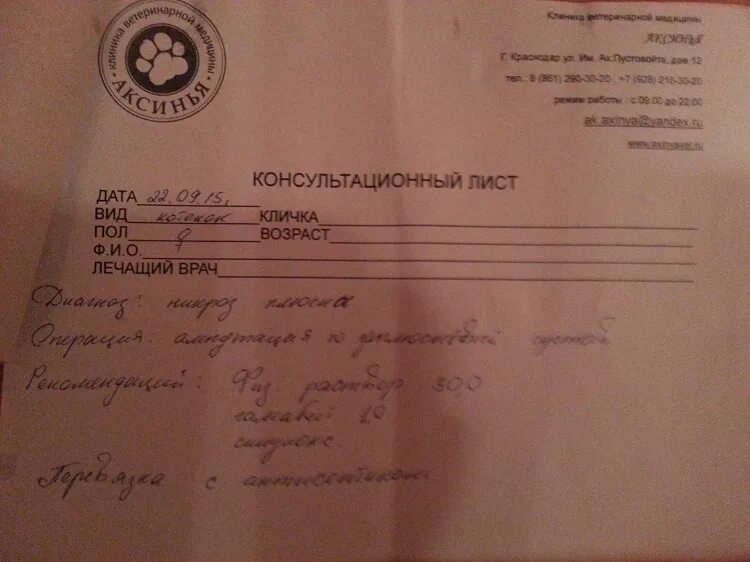 КЛИНИКА ВЕТЕРИНАРНОЙ МЕДИЦИНЫ
АКСИНЬЯ
Клиника ветеринарной медицины
АКСИНЬЯ
Г. Краснодар ул. Им. Ак.Пустовойта, дом 12
тел.: 8 (861) 290-30-20, +7 (928) 210-30-20
режим работы: с 09:00 до 22:00
ak.axinya@yandex.ru
КОНСУЛЬТАЦИОННЫЙ ЛИСТ
ДАТА 22.09.15.
ВИД котенок КЛИЧКА
ПОЛ ♀ ВОЗРАСТ
Ф.И.О.
ЛЕЧАЩИЙ ВРАЧ
Диагноз: никроз плюсны
Операция: ампутация по
Рекомендаций: Физ. раствор 30,0
гамавит 1,0
синулокс
Перевязка с антисептиком